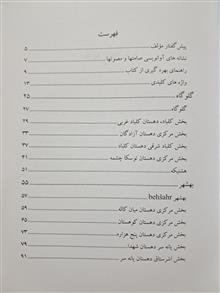 فهرست
پیش گفتار مؤلف ۵
نشانه های آوانویسی صامتها و مصوتها ۷
راهنمای بهره گیری از کتاب ۹
واژه های کلیدی ۱۳
گلوگاه ۲۵
گلوگاه ۲۷
بخش کلباد، دهستان کلباد غربی ۲۹
بخش مرکزی دهستان آزادگان ۳۳
بخش کلباد شرقی دهستان کلباد ۳۷
بخش مرکزی دهستان توسکا چشمه ۴۱
هشتیکه ۵۱
بهشهر ۵۵
بهشهر behšahr ۵۷
بخش مرکزی دهستان میان کاله ۵۹
بخش مرکزی دهستان کوهستان ۶۵
بخش مرکزی دهستان پنج هزاره ۷۳
بخش یانه سر دهستان شهدا ۷۹
بخش اشرستاق دهستان یانه سر ۹۱